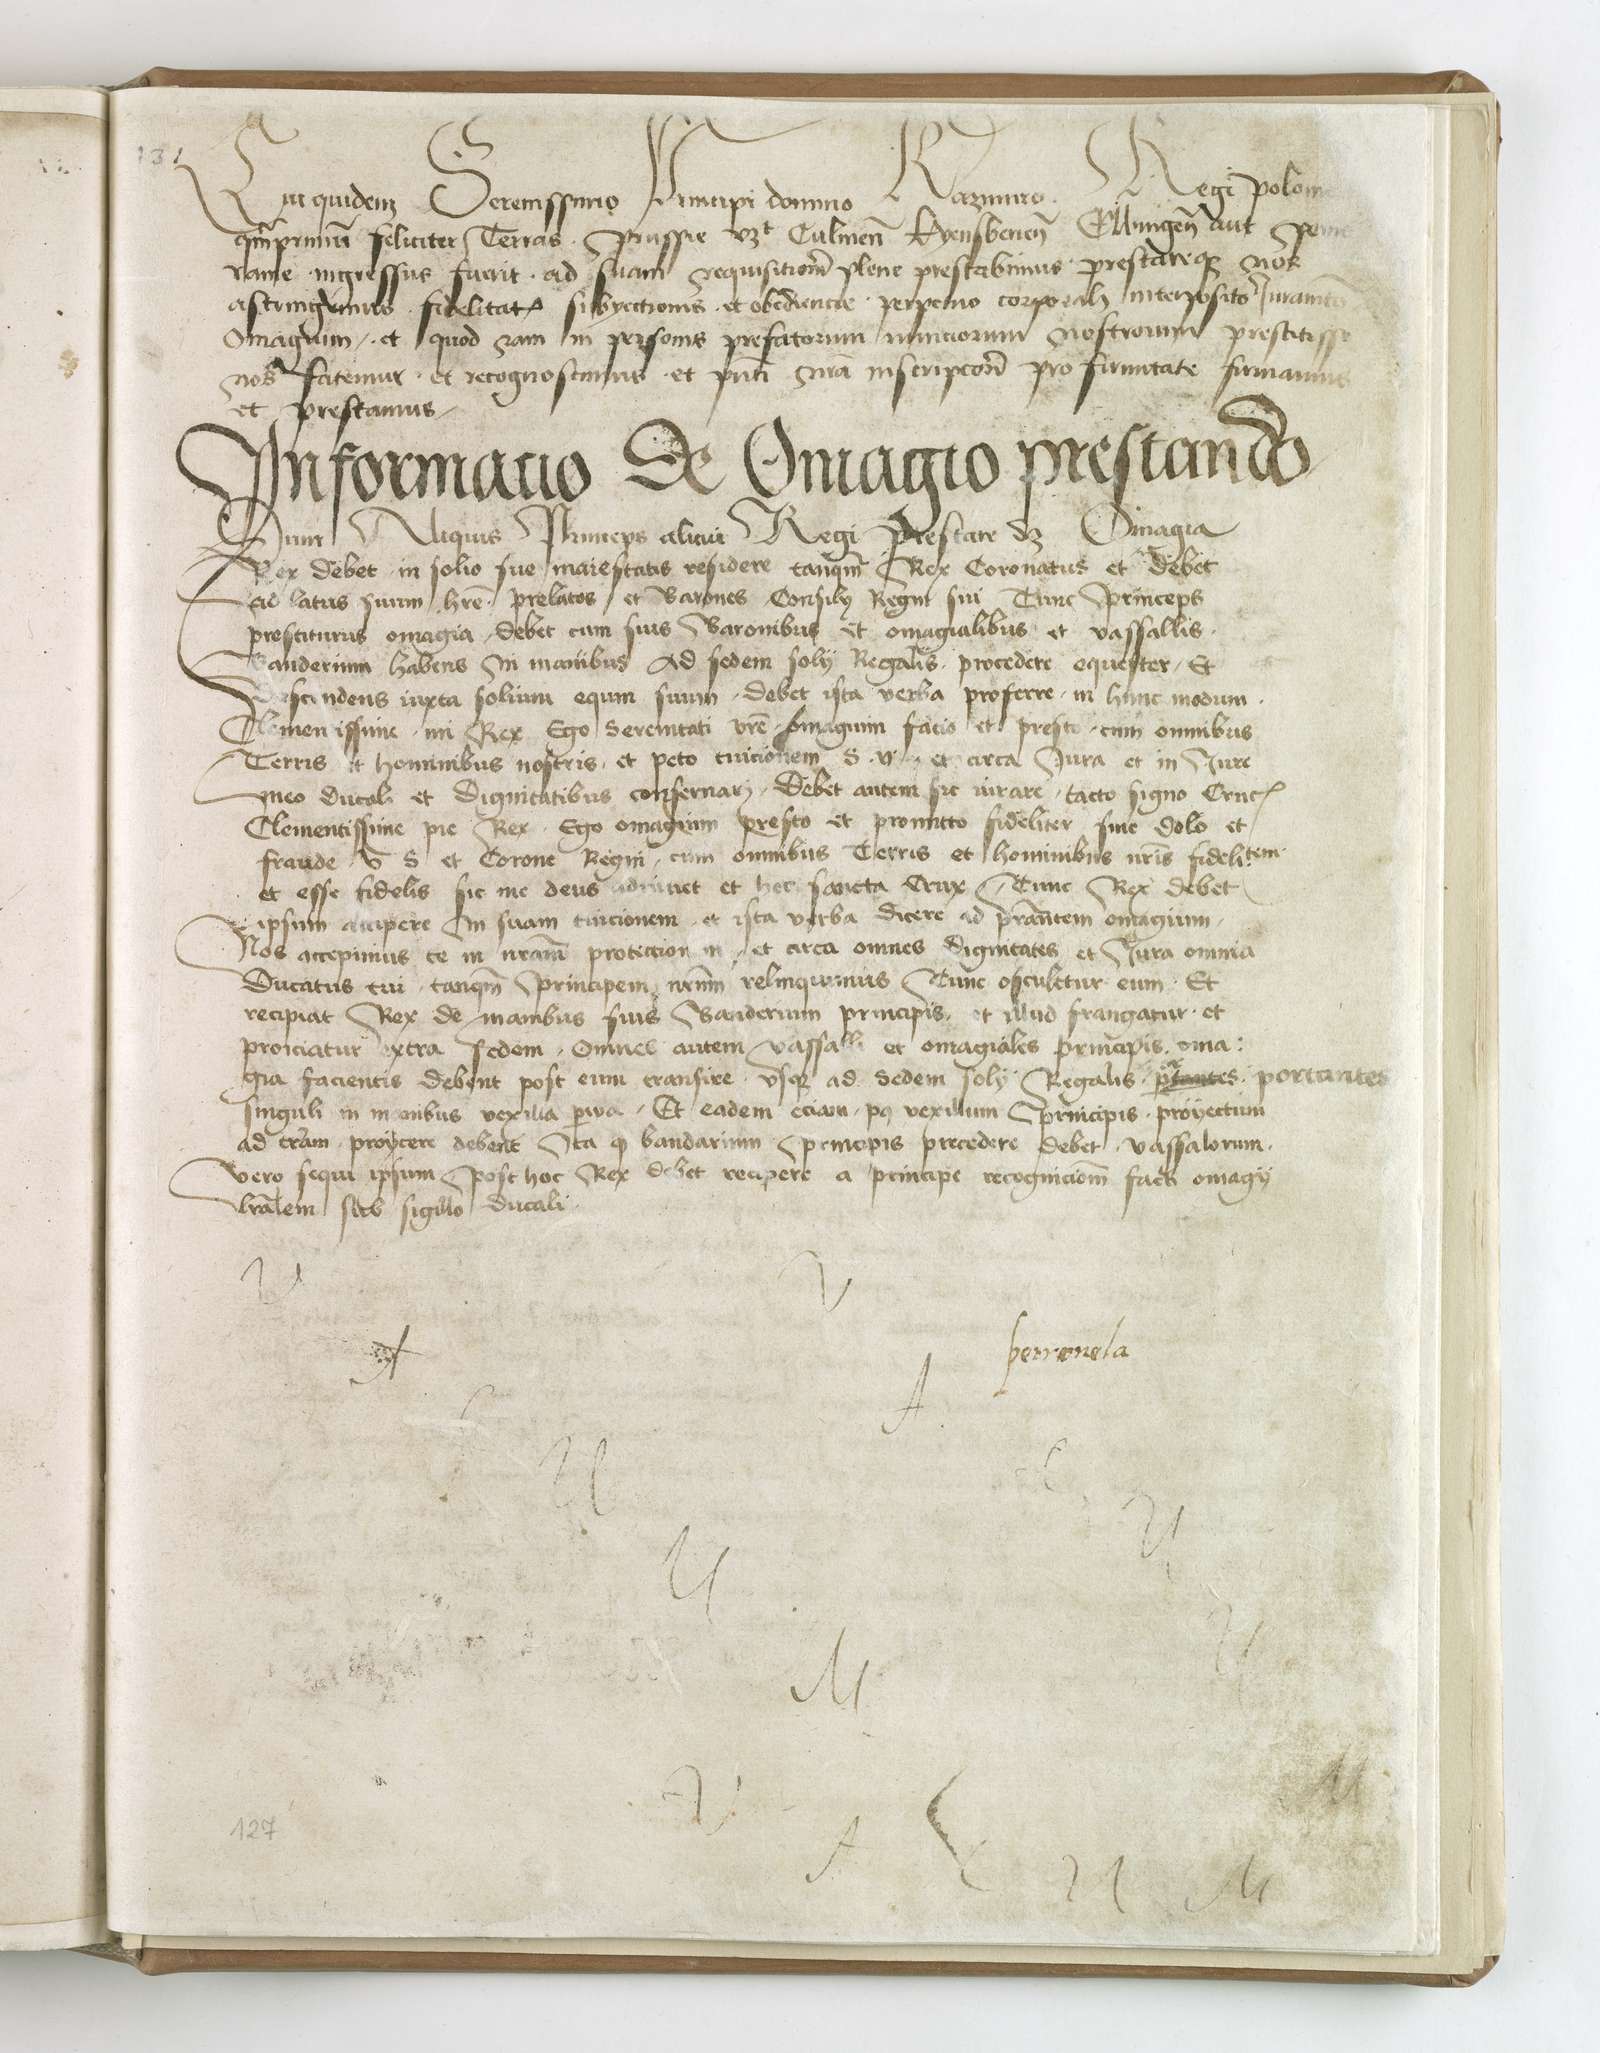 131
Cui quidem Serenissimo Principi domino Kazimiro Regi Polonie
qmprimum feliciter Terras Prussie vzt Culmen Kyensbergen Elbingen aut Pome
ranie ingressus fuerit ad suam requisitionem plene prestabimus prestareq nos
astringimus fidelitatis subyectionis et obediencie perpetuo corporali interposito Juramento
Omagium et quod iam in personis prefatorum nunciorum nostrorum prestitisse
nos fatemur et recognoscimus et pnti nra inscripcone pro firmitate firmamus
et prestamus
Informacio De Omagio prestando
Dum Aliquis Princeps alicui Regi Prestare dz Omagia
Rex debet in solio sue maiestatis residere tanqm Rex Coronatus et debet
ad latus suum hre prelatos et Barones Consily Regni sui Tunc Princeps
prestiturus omagia debet cum suis Baronibus et omagialibus et vassallis
Banderium habens in manibus Ad sedem soly Regalis procedere equester Et
Descendens iuxta solium equm suum debet ista verba proferre in hunc modum
Clementissime mi Rex Ego Serenitati vre omagium facio et presto cum omnibus
Terris et hominibus nostris et peto tuicionem S v et circa Jura et in Jure
meo Ducali et Dignitatibus conservari Debet autem sic iurare tacto signo Crucis
Clementissime pie Rex Ego omagium presto et promitto fideliter sine dolo et
fraude v S et Corone Regni cum omnibus Terris et hominibus nris fidelitem
et esse fidelis sic me deus adiuvet et hec sancta Crux Tunc Rex debet
ipsum accipere In suam tuicionem et ista verba dicere ad prantem omagium
Nos accepimus te in nram protectionem et circa omnes dignitates et Jura omnia
Ducatus tui tanqm Principem nrum relinquimus Tunc osculetur eum Et
recipiat Rex de manibus suis Banderium principis et illud frangatur et
proiciatur extra sedem Omnes autem vassalli et omagiales principis oma:
gia facientis debent post eum transire usq ad sedem soly Regalis portantes
singuli in manibus vexilla parva Et eadem eciam pq vexillum Principis proyectum
ad terram proycere debent Ita q bandarium Principis precedere debet vassalorum
vero sequi ipsum Post hoc Rex debet recipere a principe recognicionem facti omagy
lralem sub sigillo ducali
V V
A petronela
A
U
U U
M
V A M
U M
127